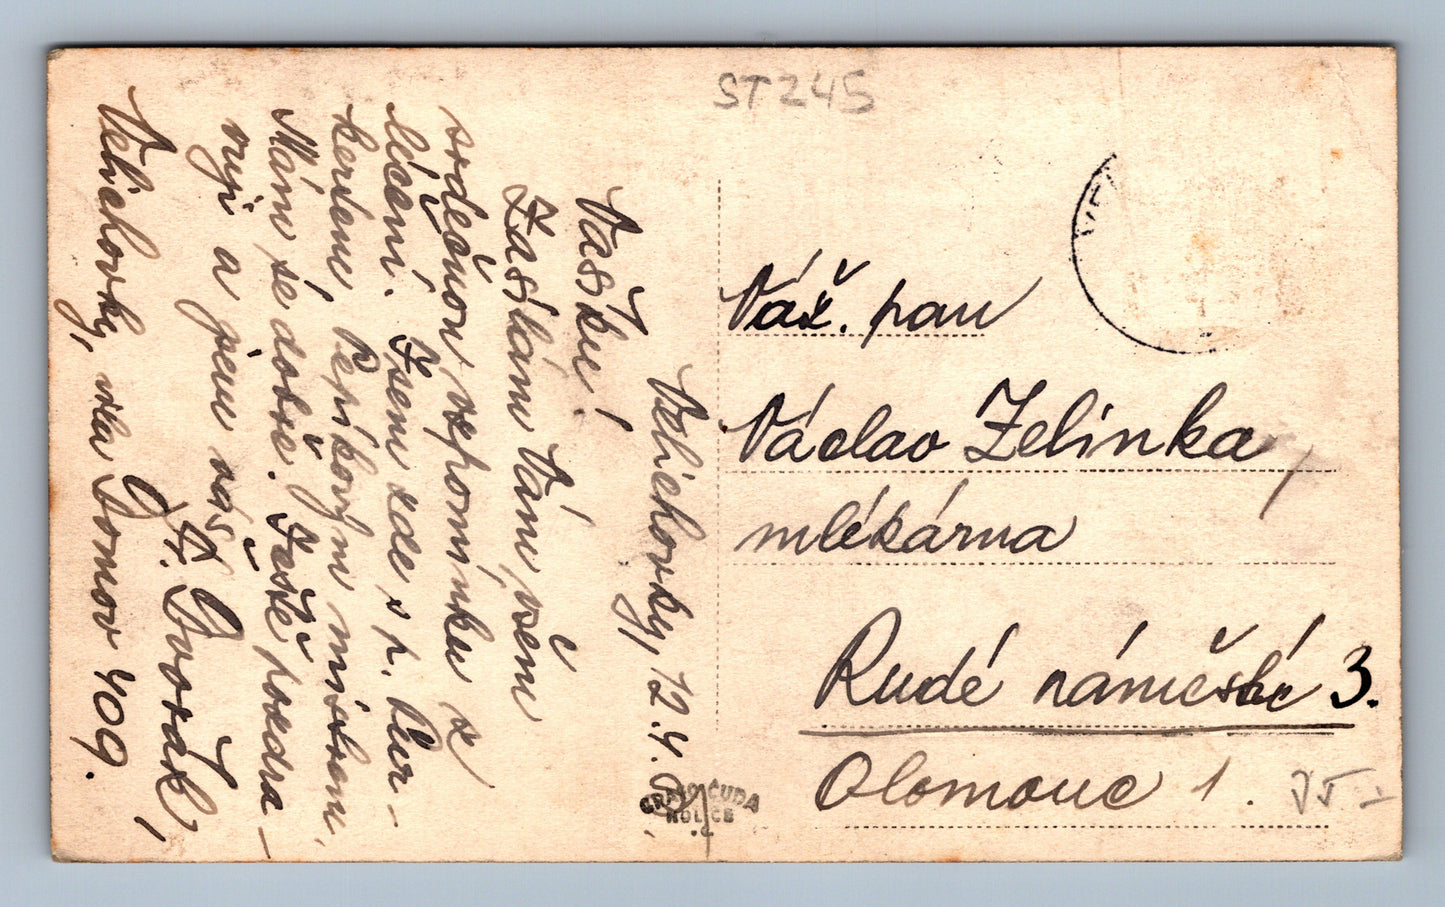 ST 245
Velichovky, 12.4. 51
Vašku!
Zasílám Vám všem
srdečnou vzpomínku z
léčení. Jsem zde s p. Kur-
kerlem, Pepíkovým mistrem.
Mám se dobře. Ještě pozdra-
vuji a jsem váš
Fr. Dvořák,
Velichovky, vila Domov 409.
Váž. pan
Václav Zelinka,
mlékárna
Rudé náměstí 3.
Olomouc 1.
GRAFO ČUDA
HOLICE